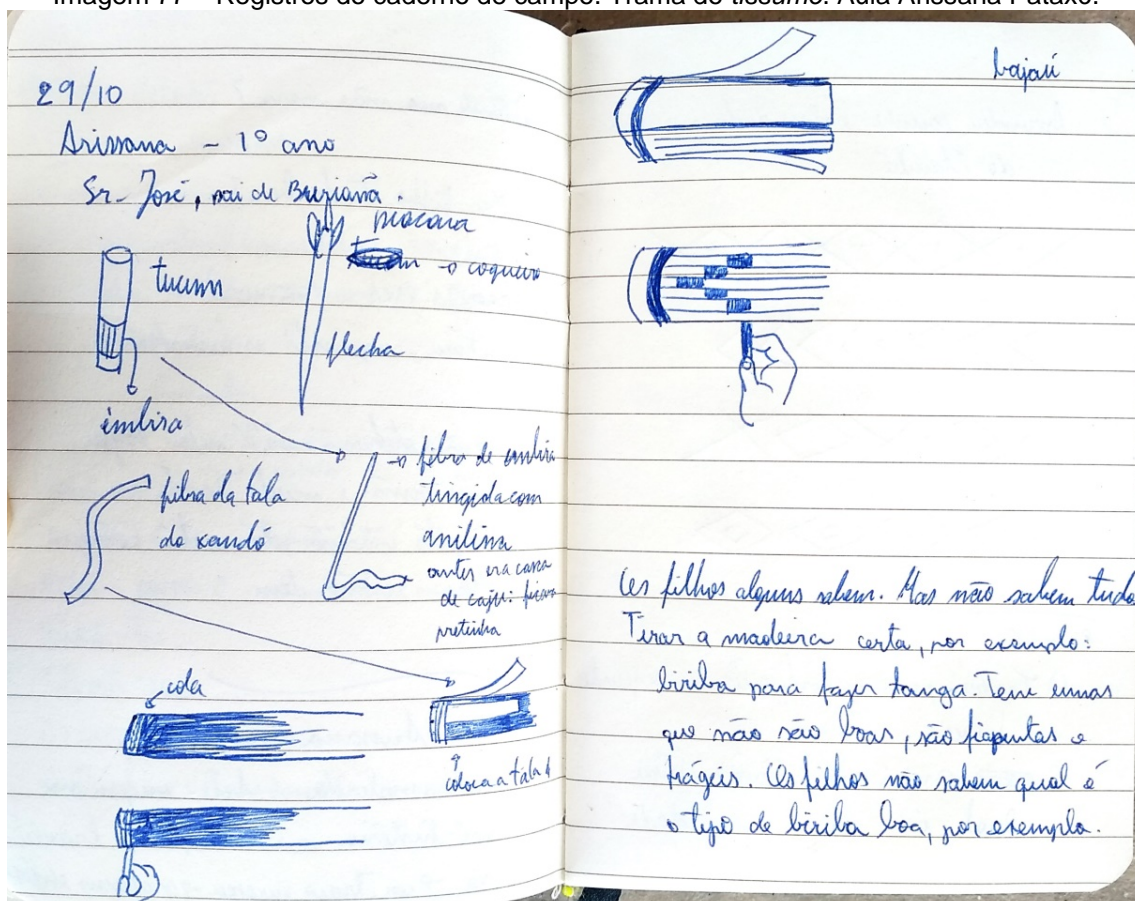 Imagem 77 – Registros do caderno de campo. Trama do tissume. Aula Arissana Pataxó.
29/10
Arissana – 1º ano
Sr. José, pai de
tucum
piacava
→ o coqueiro
flecha
êmbira
fibra da tala
do xandó
→ fibra de embira
tingida com
anilina
antes era casca
de caju: ficava
pretinha
cola
coloca a tala
bajaú
Os filhos alguns sabem. Mas não sabem tudo
Tirar a madeira certa, por exemplo:
biriba para fazer tanga. Tem umas
que não são boas, são fiapentas e
frágeis. Os filhos não sabem qual é
o tipo de biriba boa, por exemplo.